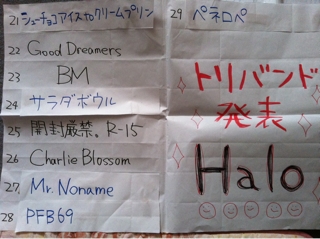 21 シューチョコアイスtoクリームプリン
22 Good Dreamers
23 BM
24 サラダボウル
25 開封厳禁。R-15
26 Charlie Blossom
27, Mr. Noname
28 PFB69
29 ペネロペ
トリバンド
発表
Halo